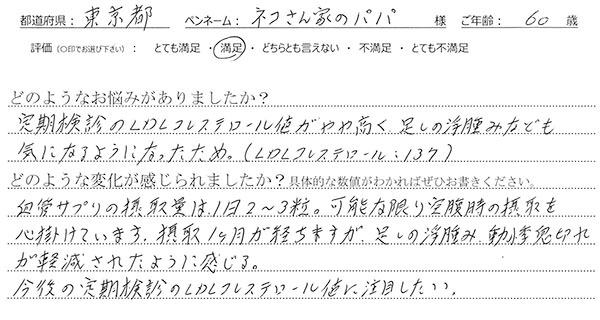 都道府県： 東京都 ペンネーム： ネコさん家のパパ 様 ご年齢： 60 歳
評価（○印でお選び下さい）： とても満足 ・ 満足 ・ どちらとも言えない ・ 不満足 ・ とても不満足
どのようなお悩みがありましたか？
定期検診のLDLコレステロール値がやや高く、足しの浮腫みなども
気になるようになったため。(LDLコレステロール：137)
どのような変化が感じられましたか？具体的な数値がわかればぜひお書きください。
血管サプリの摂取量は、1日2～3粒。可能な限り空腹時の摂取を
心掛けています。摂取1ヶ月が経ちますが、足しの浮腫み、動悸息切れ
が軽減されたように感じる。
今後の定期検診のLDLコレステロール値に注目したい。